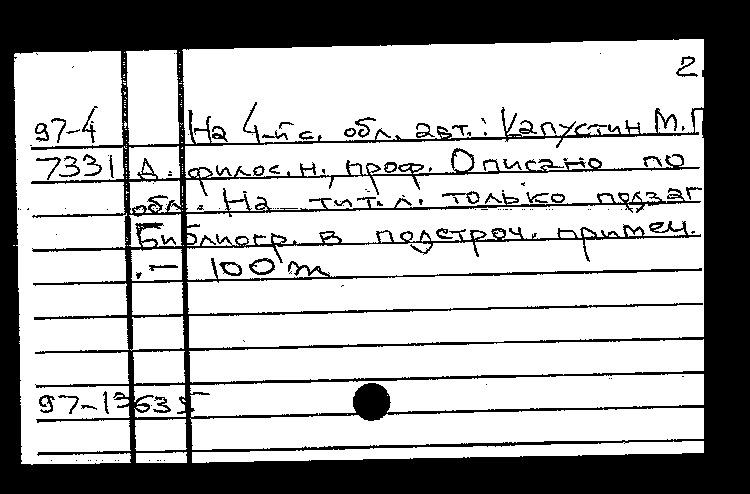 2.
97-4 На 4-й с. обл. авт.: Капустин М.П
7331 д. филос.н., проф. Описано по
обл. На тит. л. только подзаг
Библиогр. в подстроч. примеч.
. — 100 т
97-13635